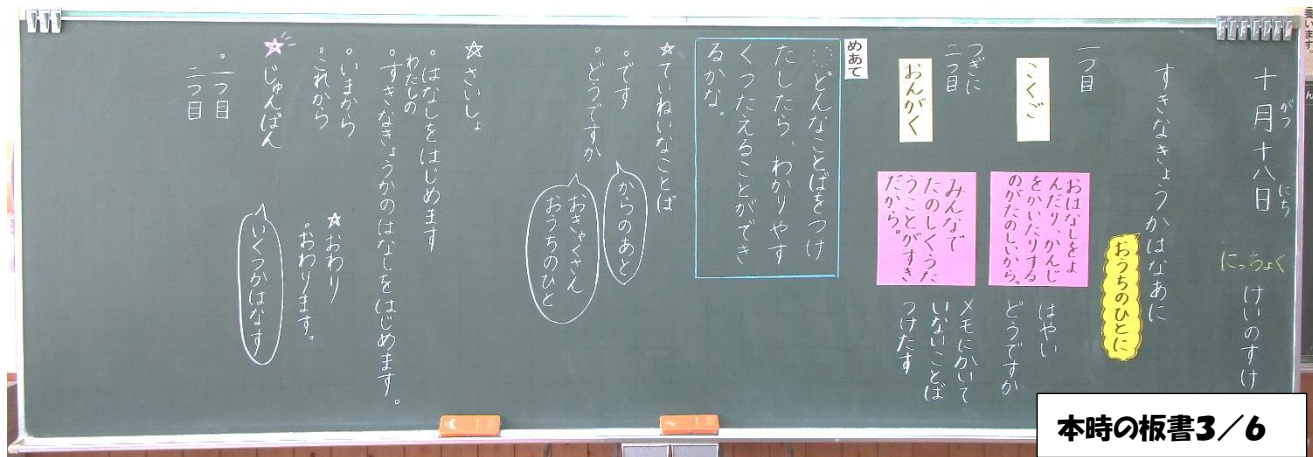 十月十八日
がつ
にち
にっちょく
けいのすけ
すきなきょうかはなあに
おうちのひとに
一つ目
こくご
おはなしをよ
んだり、かんじ
をかいたりする
のがたのしいから。
はやい
どうですか
つぎに
二つ目
おんがく
みんなで
たのしくうた
うことがすき
だから。
メモにかいて
いないことば
つけたす
めあて
どんなことばをつけ
たしたら、わかりやす
くつたえることができ
るかな。
☆ていねいなことば
・です
・どうですか
からのあと
おきゃくさん
おうちのひと
☆さいしょ
・はなしをはじめます
わたしの
・すきなきょうかのはなしをはじめます。
・いまから
これから
☆おわり
・おわります。
☆じゅんばん
いくつかはなす
・一つ目
二つ目
本時の板書3/6